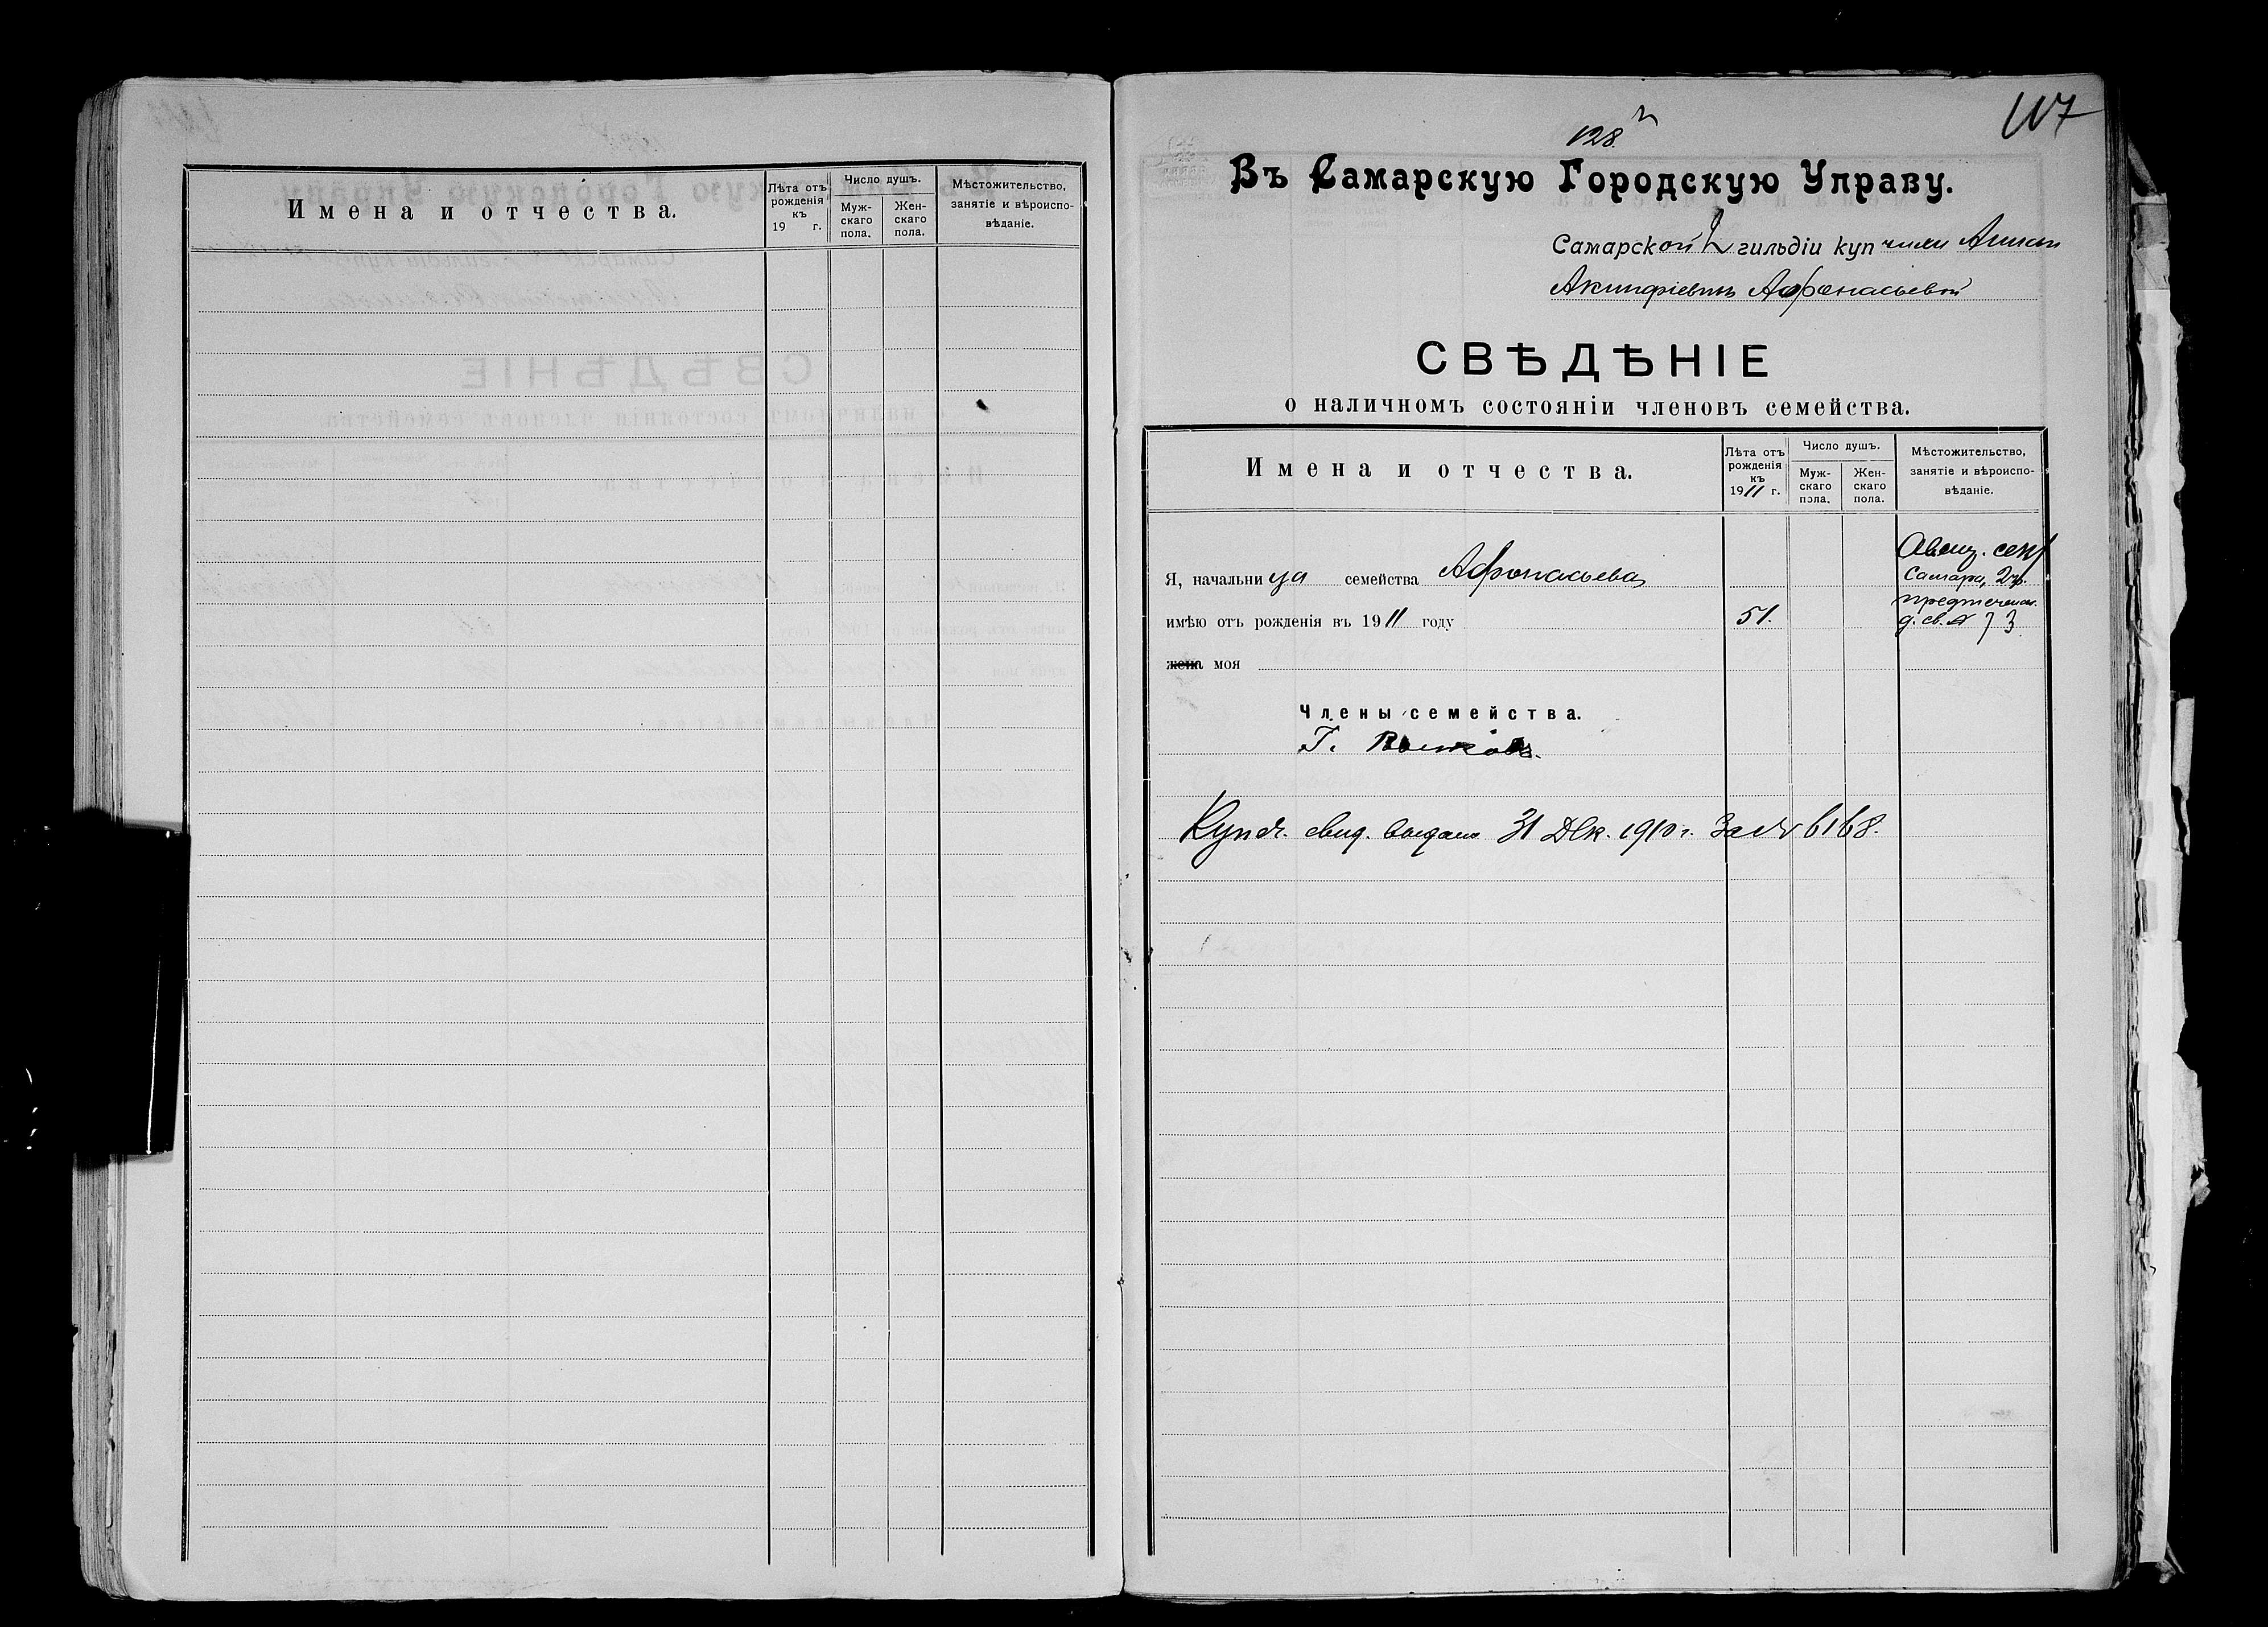 Имена и отчества.
Лѣта отъ рожденія къ 19 г.
Число душъ.
Муж-
скаго
пола.
Жен-
скаго
пола.
Мѣстожительство,
занятіе и вѣроиспо-
вѣданіе.
117
128.
Въ Самарскую Городскую Управу.
Самарской 2 гильдіи куп чихи Анны
Акинфіевны Афонасьевой
СВѢДѢНІЕ
о наличномъ состояніи членовъ семейства.
Имена и отчества.
Лѣта отъ
рожденія
къ
1911 г.
Число душъ.
Муж-
скаго
пола.
Жен-
скаго
пола.
Мѣстожительство,
занятіе и вѣроиспо-
вѣданіе.
Я, начальни ца семейства Афонасьева
Самара, 2 ч.
имѣю отъ рожденія въ 1911 году 51.
жена моя
Члены семейства.
Купч. свид. выдано 31 Дек. 1910 г. за № 6168.